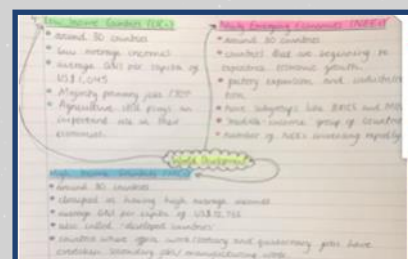 Low Income Countries (LICs)
• around 30 countries
• low average incomes
• average GNI per capita of
US$1,045
• Majority primary jobs
• Agriculture still plays an
important role in their
economies.
Newly Emerging Economies (NEEs)
• around 80 countries
• countries that are beginning to
experience economic growth.
• factory expansion and
• have subgroups like BRICS and
• middle income group of countries
• number of NEEs increasing rapidly
World Development
High Income Countries (HICs)
• around 80 countries
• classified as having high average incomes
• average GNI per capita of US$12,
• also called 'developed countries'
• countries where office work/tertiary and quaternary jobs have
overtaken secondary jobs/manufacturing work.